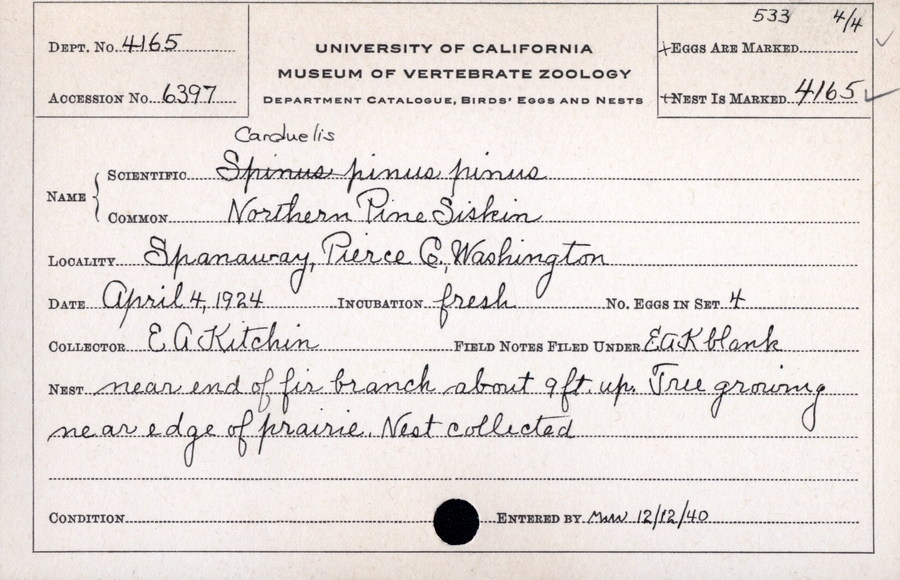 533 4/4
Dept. No. 4165
UNIVERSITY OF CALIFORNIA
Eggs Are Marked
MUSEUM OF VERTEBRATE ZOOLOGY
Accession No. 6397
Department Catalogue, Birds' Eggs and Nests
Nest Is Marked 4165
Carduelis
Name
Scientific Spinus pinus pinus
Common Northern Pine Siskin
Locality Spanaway, Pierce Co., Washington
Date April 4, 1924 Incubation fresh No. Eggs in Set 4
Collector E A Kitchin Field Notes Filed Under EAK blank
Nest near end of fir branch about 9 ft. up. Tree growing
near edge of prairie. Nest collected
Condition Entered by 12/12/40